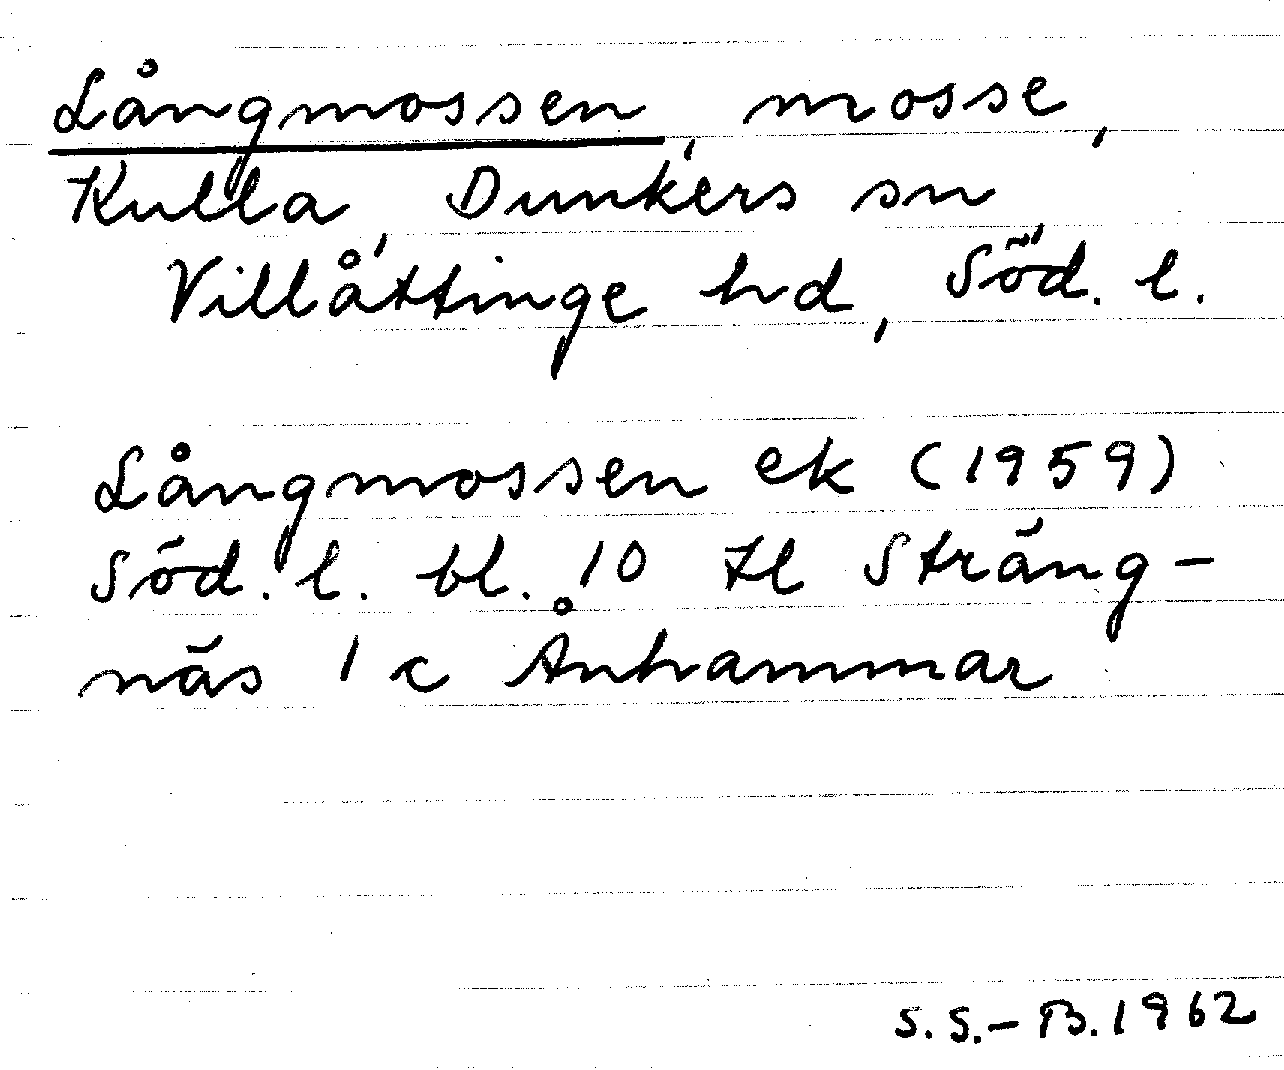 Långmossen, mosse,
Kulla, Dunkers sn,
Villåttinge hd, Söd. l.
Långmossen ek (1959)
Söd. l. bl. 10 tl Sträng-
näs 1 c Ånhammar
S. S.-B. 1962